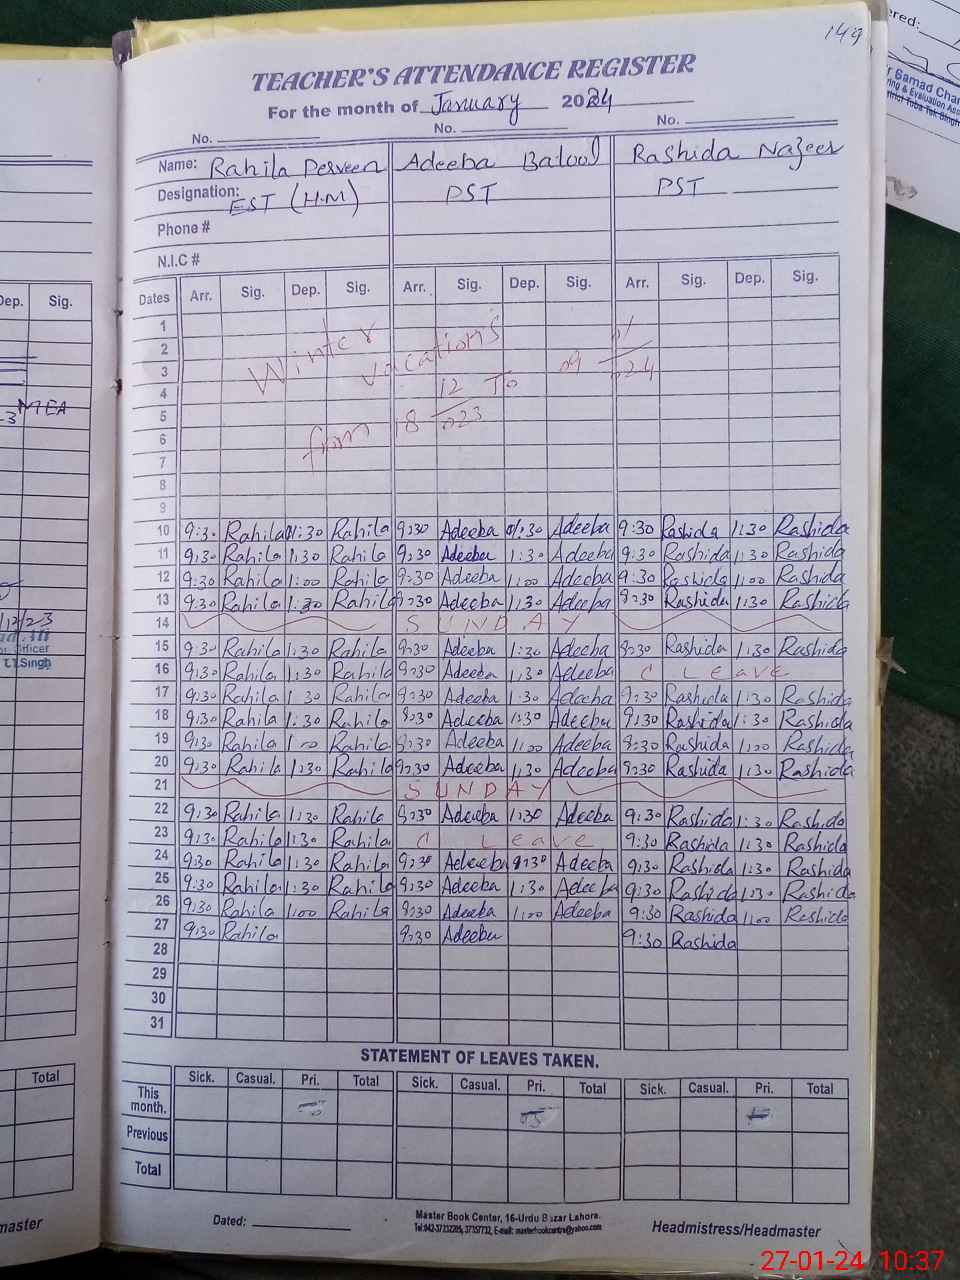 149
TEACHER'S ATTENDANCE REGISTER
For the month of January 2024
No. No. No.
Name: Rahila Perveen Adeeba Batool Rashida Nazeer
Designation: EST (H.M) PST PST
Phone #
N.I.C #
Dates Arr. Sig. Dep. Sig. Arr. Sig. Dep. Sig. Arr. Sig. Dep. Sig.
1
2
3
4
5
6
7
8
9
Winter vacations
from 18 12 2023 To 09 01 2024
10 9:30 Rahila 1:30 Rahila 9:30 Adeeba 1:30 Adeeba 9:30 Rashida 1:30 Rashida
11 9:30 Rahila 1:30 Rahila 9:30 Adeeba 1:30 Adeeba 9:30 Rashida 1:30 Rashida
12 9:30 Rahila 1:00 Rahila 9:30 Adeeba 1:00 Adeeba 9:30 Rashida 1:00 Rashida
13 9:30 Rahila 1:30 Rahila 9:30 Adeeba 1:30 Adeeba 9:30 Rashida 1:30 Rashida
14 SUNDAY
15 9:30 Rahila 1:30 Rahila 9:30 Adeeba 1:30 Adeeba 9:30 Rashida 1:30 Rashida
16 9:30 Rahila 1:30 Rahila 9:30 Adeeba 1:30 Adeeba C Leave
17 9:30 Rahila 1 30 Rahila 9:30 Adeeba 1:30 Adeeba 9:30 Rashida 1:30 Rashida
18 9:30 Rahila 1:30 Rahila 9:30 Adeeba 1:30 Adeeba 9:30 Rashida 1:30 Rashida
19 9:30 Rahila 1 00 Rahila 9:30 Adeeba 1:00 Adeeba 9:30 Rashida 1:00 Rashida
20 9:30 Rahila 1:30 Rahila 9:30 Adeeba 1:30 Adeeba 9:30 Rashida 1:30 Rashida
21 SUNDAY
22 9:30 Rahila 1:30 Rahila 9:30 Adeeba 1:30 Adeeba 9:30 Rashida 1:30 Rashida
23 9:30 Rahila 1:30 Rahila C Leave 9:30 Rashida 1:30 Rashida
24 9:30 Rahila 1:30 Rahila 9:30 Adeeba Adeeba 9:30 Rashida 1:30 Rashida
25 9:30 Rahila 1:30 Rahila 9:30 Adeeba 1:30 Adeeba 9:30 Rashida 1:30 Rashida
26 9:30 Rahila 1:00 Rahila 9:30 Adeeba 1:00 Adeeba 9:30 Rashida 1:00 Rashida
27 9:30 Rahila 9:30 Adeeba 9:30 Rashida
28
29
30
31
STATEMENT OF LEAVES TAKEN.
Sick. Casual. Pri. Total Sick. Casual. Pri. Total Sick. Casual. Pri. Total
This month.
Previous
Total
Dated:
Master Book Center, 16-Urdu Bazar Lahore.
Headmistress/Headmaster
Dep. Sig.
MEA
12/23
Officer
T.T.Singh
Total
master
ered:
Samad
& Evaluation
Toba Tek Singh
27-01-24 10:37